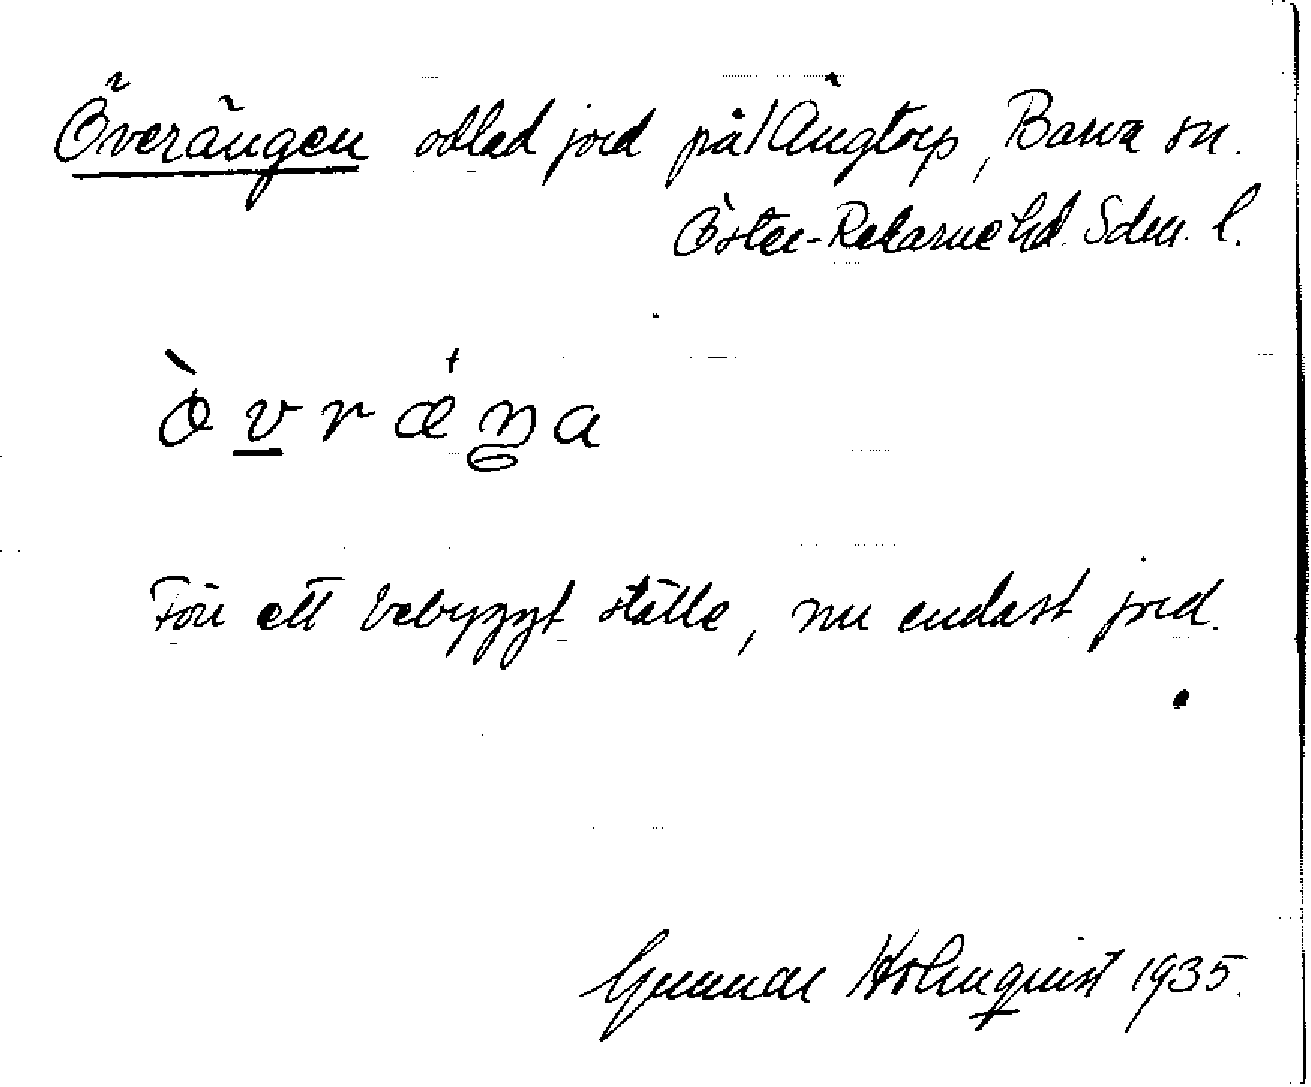 Överängen odlad jord på Ängtorp, Barva sn.
Öster-Rekarne hd. Sdm. l.
ò v r ǽ ŋ a
Förr ett bebyggt ställe, nu endast jord.
Gunnar Holmquist 1935.